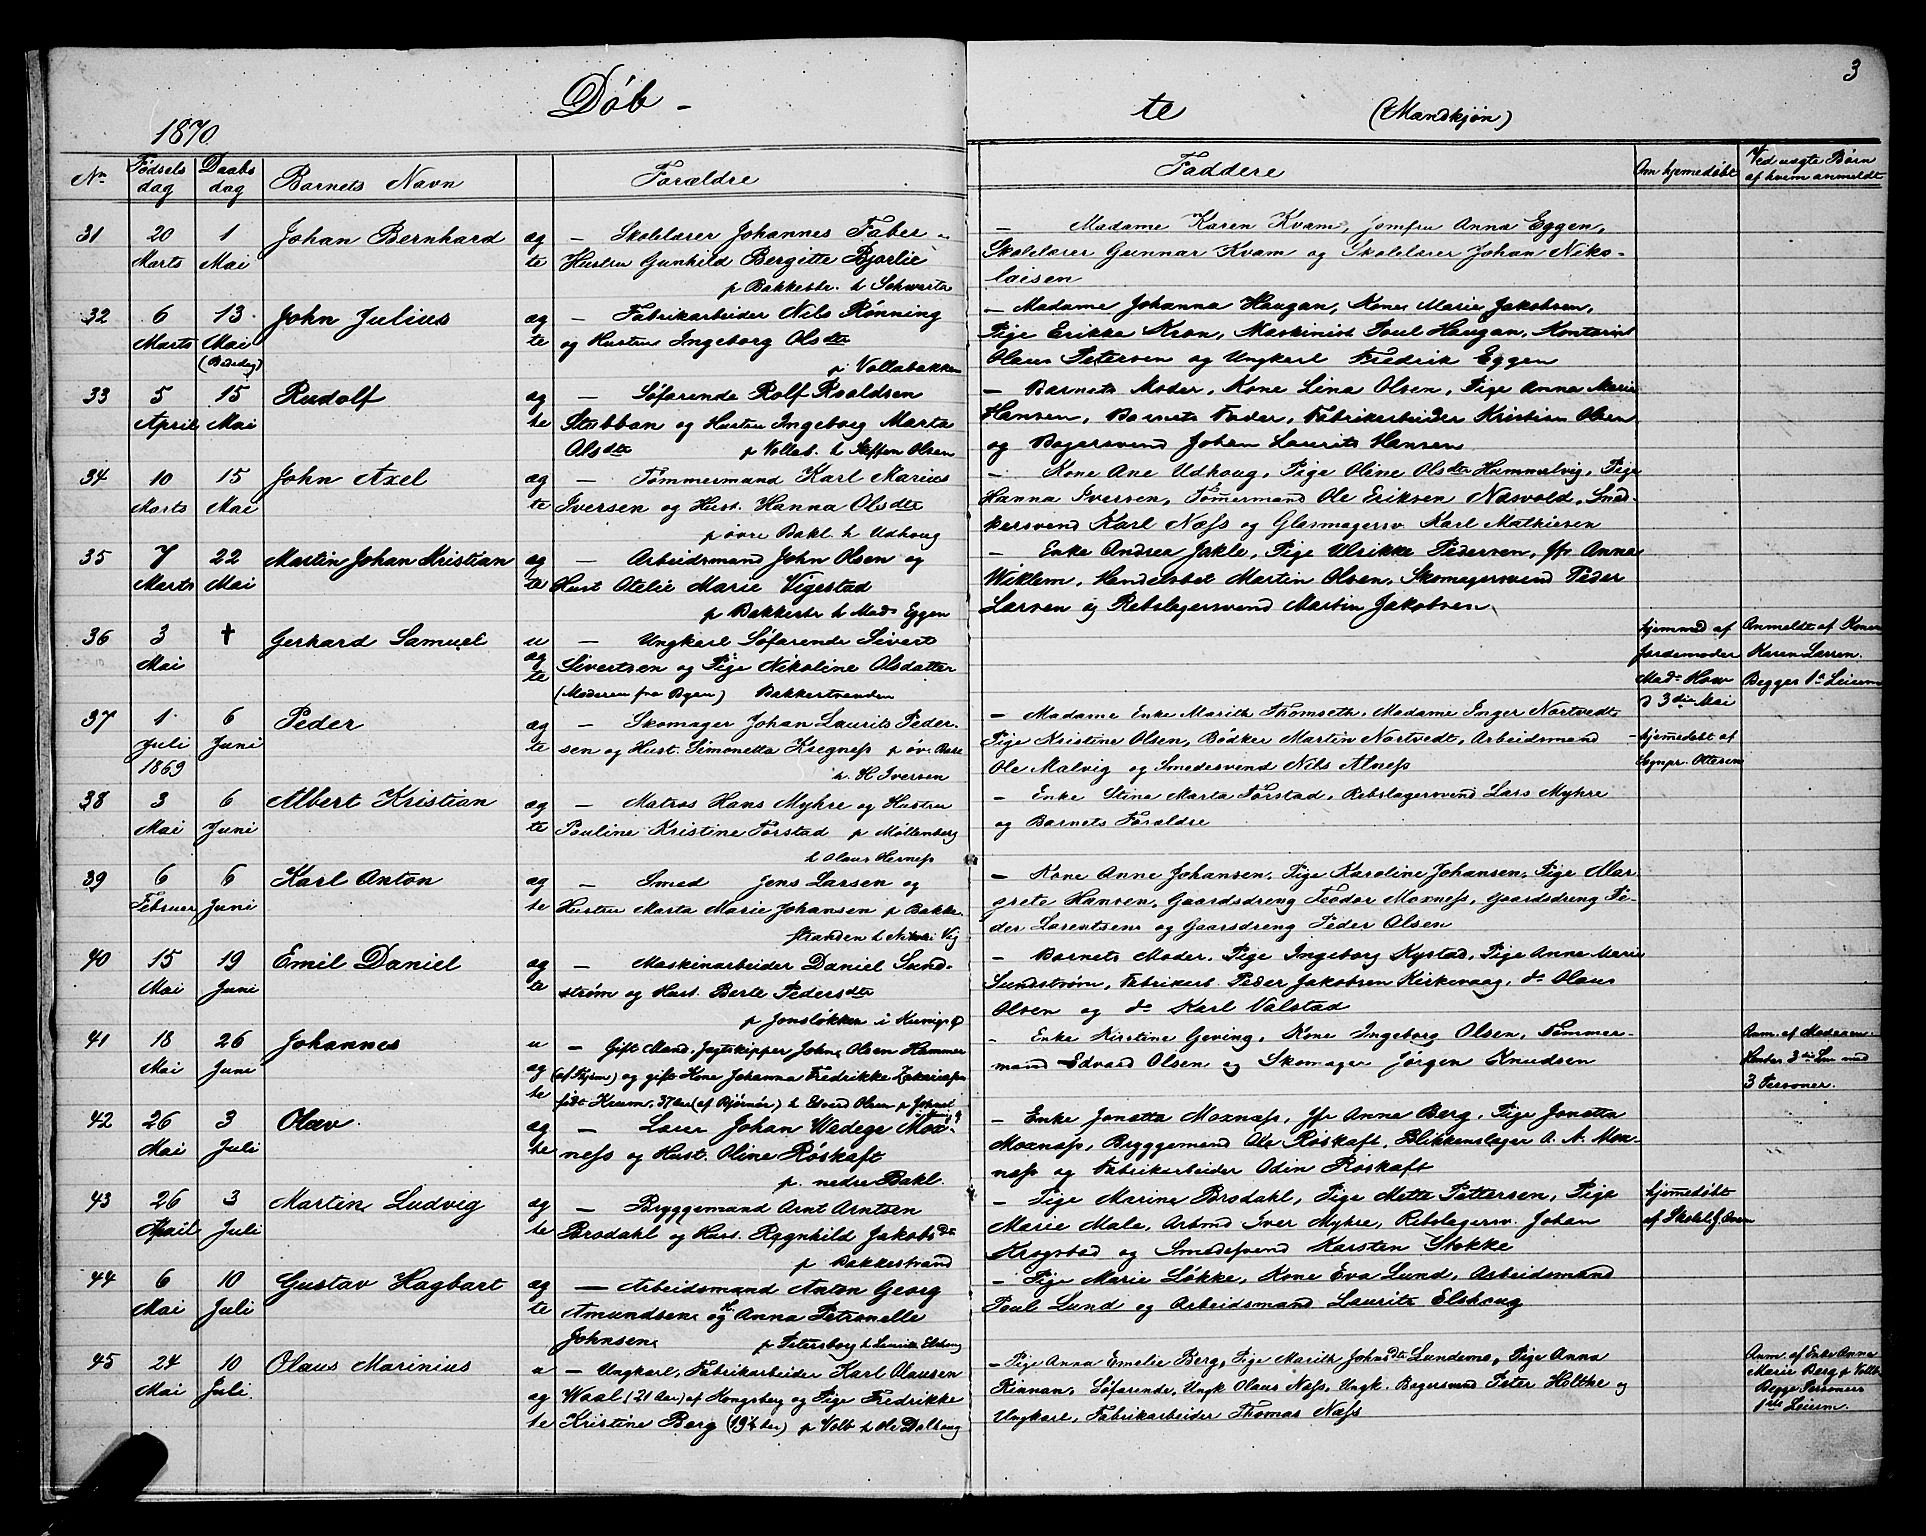 3
Døb - te (Mandkjøn)
1870
No Fødsels dag Daabs dag Barnets Navn Forældre Faddere Om hjemmedøbt Ved uægte Børn af hvem anmeldt
31 20 Marts 1 Mai Johan Bernhard ægte
— Skolelærer Johannes Faber
Hustru Gunhild Bergitte Bjørlie
p Bakkestr. h Schwartz
— Madame Karen Kvam, jomfru Anna Eggen,
Skolelærer Gunnar Kvam og Skolelærer Johan Niko-
laisen
32 6 Marts 13 Mai (Bededag) John Julius ægte
— Fabrikarbeider Nils Rønning
og Hustru Ingeborg Olsdtr
p Vollabakken
— Madame Johanna Haugan, Kone Marie Jakobsen,
Pige Erikka Kron, Maskinist Poul Haugan, Kontorist
Olaus Petersen og Ungkarl Fredrik Eggen
33 5 April 15 Mai Rudolf ægte
— Søfarende Rolf Roaldsen
Stubban og Hustru Ingeborg Marta
Olsdtr p Vollab. h Steffen Olsen
— Barnets Moder, Kone Lina Olsen, Pige Anna Marie
Hansen, Barnets Fader, Fabrikarbeider Kristian Olsen
og Bagersvend Johan Laurits Hansen
34 10 Marts 15 Mai John Axel ægte
— Tømmermand Karl Marius
Iversen og Hust. Hanna Olsdtr
p øvre Bakl. h Udhoug
— Kone Ane Udhoug, Pige Oline Olsdtr Hammelvig, Pige
Hanna Iversen, Tømermand Ole Eriksen Næsvold, Sned-
kersvend Karl Næss og Glasmagersv. Karl Mathiesen
35 7 Marts 22 Mai Martin Johan Kristian ægte
— Arbeidsmand John Olsen og
Hust Otelie Marie Vigestad
p Bakkestr h Mads Eggen
— Enke Andrea Jakle, Pige Ulrikke Pedersen, Jfr Anna
Wiklem, Handelsbet Martin Olsen, Skomagersvend Peder
Larsen og Rebslagersvend Martin Jakobsen
36 3 Mai † Gerhard Samuel uægte
— Ungkarl Søfarende Sivert
Sivertsen og Pige Nikoline Olsdatter
(Moderen fra Byen) Bakkestranden
hjemmed af
Jordemoder
Mad. How
d 3die Mai
Anmeldt af Konen
Karen Larsen.
Begges 1ste Leierm
37 1 Juli 1869 6 Juni Peder ægte
— Skomager Johan Laurits Peder-
sen og Hust. Simonetta Kregness p øv. Bakl
h. H Iversen
— Madame Enke Marith Thomseth, Madame Inger Nortvedt,
Pige Kristine Olsen, Bødker Martin Nortvedt, Arbeidsmand
Ole Malvig og Smedesvend Nils Alness
hjemedøbt af
Sognpr. Ottesen
38 3 Mai 6 Juni Albert Kristian ægte
— Matros Hans Myhre og Hustru
Pauline Kristine Torstad p Møllenberg
h Olaus Herness
— Enke Stina Marta Torstad, Rebslagersvend Lars Myhre
og Barnets Forældre
39 6 Februar 6 Juni Karl Anton ægte
— Smed Jens Larsen og
Hustru Marta Marie Johansen p Bakke-
stranden h Nikolai Vig
— Kone Anne Johansen, Pige Karoline Johansen, Pige Mar-
grete Hansen, Gaardsdreng Teodor Moxness, Gaardsdreng Pe-
der Larentsen og Gaarsdreng Peder Olsen
40 15 Mai 19 Juni Emil Daniel ægte
— Maskinarbeider Daniel Sund-
strøm og Hust. Berle Pedersdtr
p Jonsløkken
— Barnets Moder, Pige Ingeborg Nystad, Pige Anna Marie
Sundstrøm, Fabrikarb. Peder Jakobsen Kirkevaag, do Olaus
Olsen og do Karl Valstad
41 18 Mai 26 Juni Johannes uægte
— Gift Mand, Jagtskipper John Olsen Hammer
(af Hjem) og gift Kone Johanna Fredrikke Zakariasen
født Krum, 37 Aar (af Bjørnør) h Edvard Olsen
— Enke Kirstine Geving, Kone Ingeborg Olsen, Tømmer-
mand Edvard Olsen og Skomager Jørgen Knudsen
Anm. af Moderen
3 Personer.
42 26 Mai 3 Juli Olav ægte
— Lærer Johan Wedege Mox-
ness og Hust. Oline Røskaft
p. nedre Bakl.
— Enke Jonetta Moxness, Jfr Anna Berg, Pige Jonetta
Moxness, Bryggemand Ole Røskaft, Blikkenslager A. A. Mox-
ness og Fabrikarbeider Odin Røskaft
43 26 April 3 Juli Martin Ludvig ægte
— Bryggemand Arnt Arntsen
Brodahl og Hust. Ragnhild Jakobsdtr
p Bakkestrand
— Pige Marine Brodahl, Pige Mette Pettersen, Pige
Marie Male, Arbmd Iver Myhre, Rebslagersv. Johan
Krogstad og Smedesvend Karsten Stokke
hjemedøbt
af Skolel. J. Aven
44 6 Mai 10 Juli Gustav Hagbart ægte
— Arbeidsmand Anton Georg
Amundsen og H Anna Petronelle
Johnsen p Petersborg h Lauritz Elshoug
— Pige Marie Løkke, Kone Eva Lund, Arbeidsmand
Poul Lund og Arbeidsmand Laurits Elshoug
45 24 Mai 10 Juli. Olaus Marinius uægte
— Ungkarl, Fabrikarbeider Karl Olausen
Waal (21 Aar) af Kongsberg og Pige Fredrikke
Kristine Berg (19½ Aar) p Volb h Ole Dalhaug
— Pige Anna Emelie Berg, Pige Marith Johnsdtr Lundemo, Pige Anna
Rinnan, Søfarende, Ungk Olaus Næss, Ungk. Bagersvend Peter Holthe og
Ungkarl, Fabrikarbeider Thomas Næss
Anm. af Enke Anna
Marie Berg p Vollb
Begge Personers
1ste Leierm.